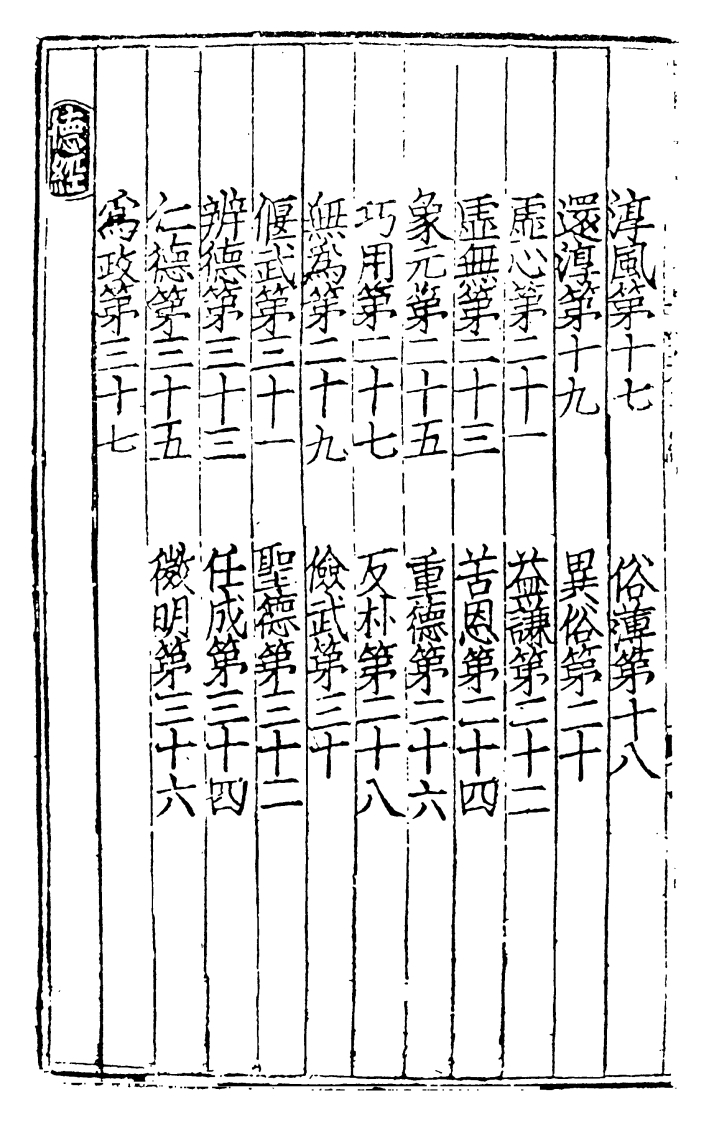 淳風第十七　俗薄第十八
還淳第十九　異俗第二十
虛心第二十一　益謙第二十二
虛無第二十三　苦恩第二十四
象元第二十五　重德第二十六
巧用第二十七　反朴第二十八
無為第二十九　儉武第三十
偃武第三十一　聖德第三十二
辨德第三十三　任成第三十四
仁德第三十五　微明第三十六
為政第三十七
德經